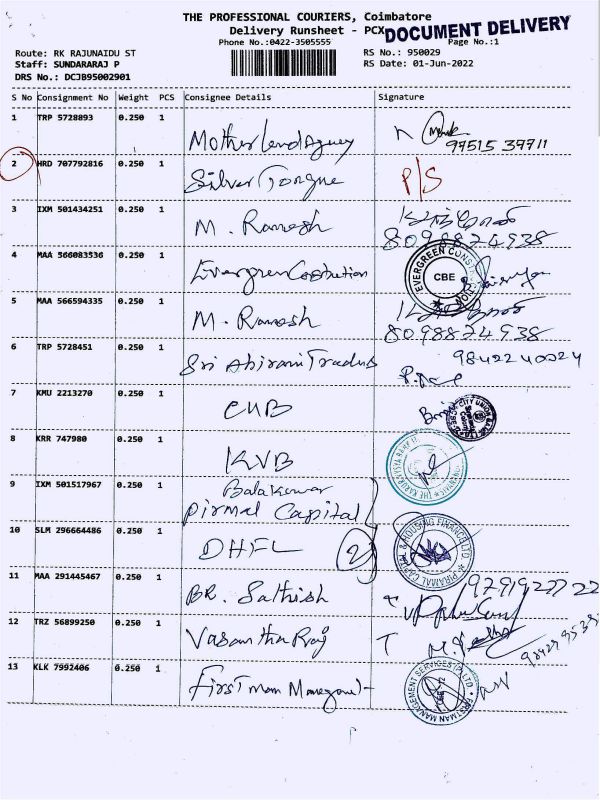 THE PROFESSIONAL COURIERS, Coimbatore
Delivery Runsheet - PCX
DOCUMENT DELIVERY
Phone No.:0422-3505555
Page No.:1
Route: RK RAJUNAIDU ST
RS No.: 950029
Staff: SUNDARARAJ P
RS Date: 01-Jun-2022
DRS No.: DCJB95002901
S No Consignment No Weight PCS Consignee Details Signature
1 TRP 5728893 0.250 1
Motherland Agency
97515 39711
2 HRD 707792816 0.250 1
Silver Tongue P/S
3 IXM 501434251 0.250 1
M. Ramesh
8098874938
4 MAA 566083536 0.250 1
Evergreen
EVERGREEN CBE
5 MAA 566594335 0.250 1
M. Ramesh
8098874938
6 TRP 5728451 0.250 1
Sri Abirami Traders
9842240024
7 KMU 2213270 0.250 1
CUB
CITY UNION BANK
8 KRR 747980 0.250 1
KVB
THE KARUR VYSYA BANK
9 IXM 501517967 0.250 1
Balakumar
Pirmal Capital
10 SLM 296664486 0.250 1
DHFL 2
PIRAMAL CAPITAL & HOUSING FINANCE LTD
11 MAA 291445467 0.250 1
BR. Sathish
12 TRZ 56899250 0.250 1
Vasantha Raj
13 KLK 7992406 0.250 1
First man
FIRSTMAN MANAGEMENT SERVICES